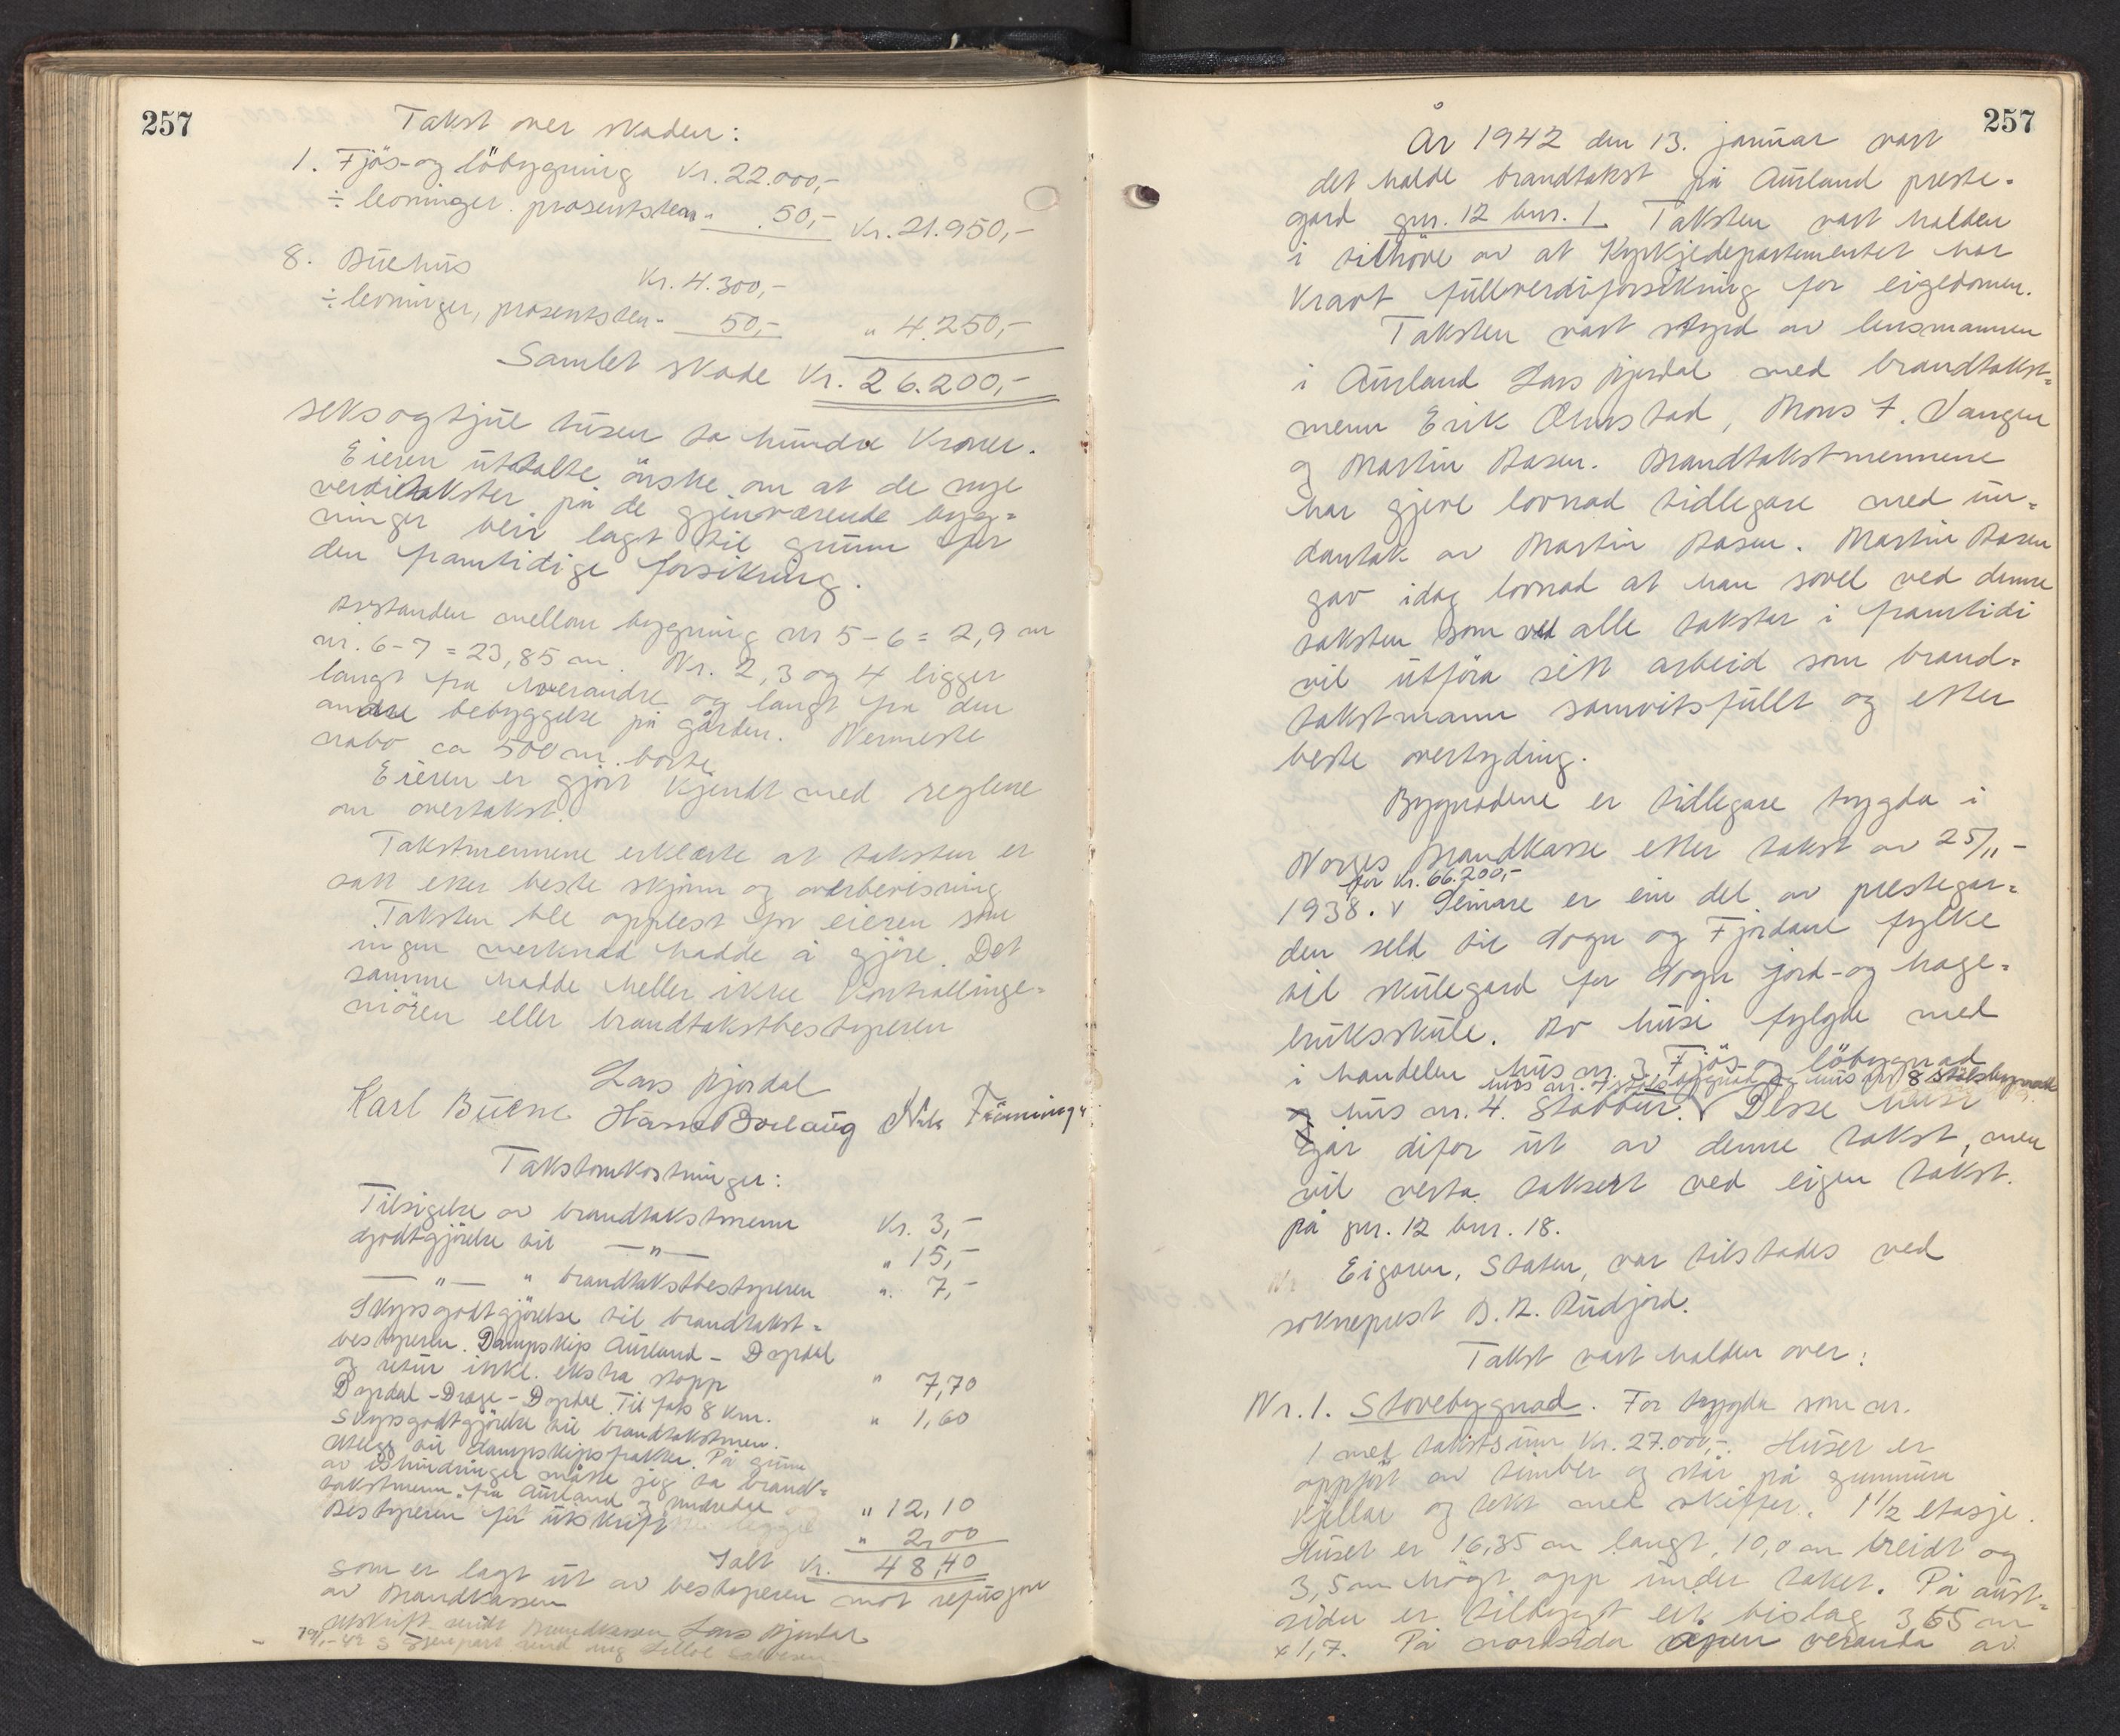 257
Takst over skaden:
1. Fjös- og löbygning Kr. 22.000,-
÷ levninger. prosentsten " 50,- Kr. 21.950,-
8. Buehus
Kr. 4.300,-
÷ levninger, prosentsten - 50,- " 4.250,-
Samlet skade Kr. 26.200,-
seksogtjue tusen to hundre Kroner.
Eieren uttalte önske om at de nye
verditakster på de gjenværende byg=
ninger blir lagt til grunn for
den framtidige forsikring.
Avstanden mellom bygning nr 5-6 = 2,9 m
nr. 6-7 = 23,85 m. Nr. 2, 3 og 4 ligger
langt fra hverandre og langt fra den
andre bebyggelse på gården. Nermeste
nabo ca 500 m. borte.
Eieren er gjort Kjendt med reglene
om overtakst.
Takstmennene erklærte at taksten er
satt etter beste skjönn og overbevisning
Taksten ble opplest for eieren som
ingen merknad hadde å gjöre. Det
samme hadde heller ikke Kontrollinge=
niören eller brandtakstbestyreren
Lars Bjordal
Karl Buene Hans Borlaug Nils Frönningen
Takstomkostninger:
Tilsigelse av brandtakstmenn Kr. 3,-
Godtgjörelse til —"— " 15,-
—"— " brandtakstbestyreren " 7,-
Skyssgodtgjörelse til brandtakst=
bestyreren. Dampskip Aurland - Dyrdal
og retur inkl. ekstra stopp " 7,70
Dyrdal - Drage - Dyrdal Til fots 8 km. " 1,60
Skyssgodtgjörelse til brandtakstmen.
Utlegg til dampskipsfrakter. På grunn
av ishindringer måtte jeg ta brand=
takstmenn fra Aurland og Undredal " 12,10
Bestyreren for utskrift " 2,00
Ialt Kr. 48,40
som er lagt ut av bestyreren mot refusjon
av Brandkassen
Utskrift sendt Brandkassen Lars Bjordal
257
År 1942 den 13. januar vart
det halde brandtakst på Aurland preste=
gard gnr. 12 bnr. 1. Taksten vart halden
i tilhöve av at Kyrkjedepartementet har
Kravt fullverdiforsikring for eigedomen.
Taksten vart styrd av lensmannen
i Aurland Lars Bjordal med brandtakst=
menn Erik Ohnstad, Mons F. Vangen
og Martin Åasen. Brandtakstmennene
har gjeve lovnad tidlegare med un=
dantak av Martin Åasen. Martin Åasen
gav idag lovnad at han sovel ved denne
taksten som ved alle takstar i framtidi
vil utföra sitt arbeid som brand=
takstmann samvitsfullt og etter
beste overtyding.
Bygnadene er tidlegare trygda i
Norges Brandkasse etter takst av 25/11-
for Kr. 66.200,-
1938. v Seinare er ein del av prestegar=
den seld til Sogn og Fjordane fylke
til skulegard for Sogn jord- og hage=
bruksskule. Av husi fylgde med
i handelen hus nr. 3 Fjös- og löbygnad
hus nr. 7 stølsbygnad og hus nr 8 stölsbygnad
og hus nr. 4. Stabbur. v Desse husi
går difor ut av denne takst, men
vil verta taksert ved eigen takst.
på gnr. 12 bnr. 18.
Eigaren, Staten, var tilstades ved
sokneprest B. R. Rudjord.
Takst vart halden over:
Nr. 1. Stovebygnad. For trygda som nr.
1 med takstsum Kr. 27.000,-. Huset er
oppfört av timber og står på grunnmur
Kjellar og tekt med skiffer. 1 1/2 etasje.
Huset er 16,35 m langt, 10,0 m breidt og
3,5 m högt opp under taket. På aust=
sida er tilbygt eit bislag 3,65 m
x 1,7. På nordsida open veranda av